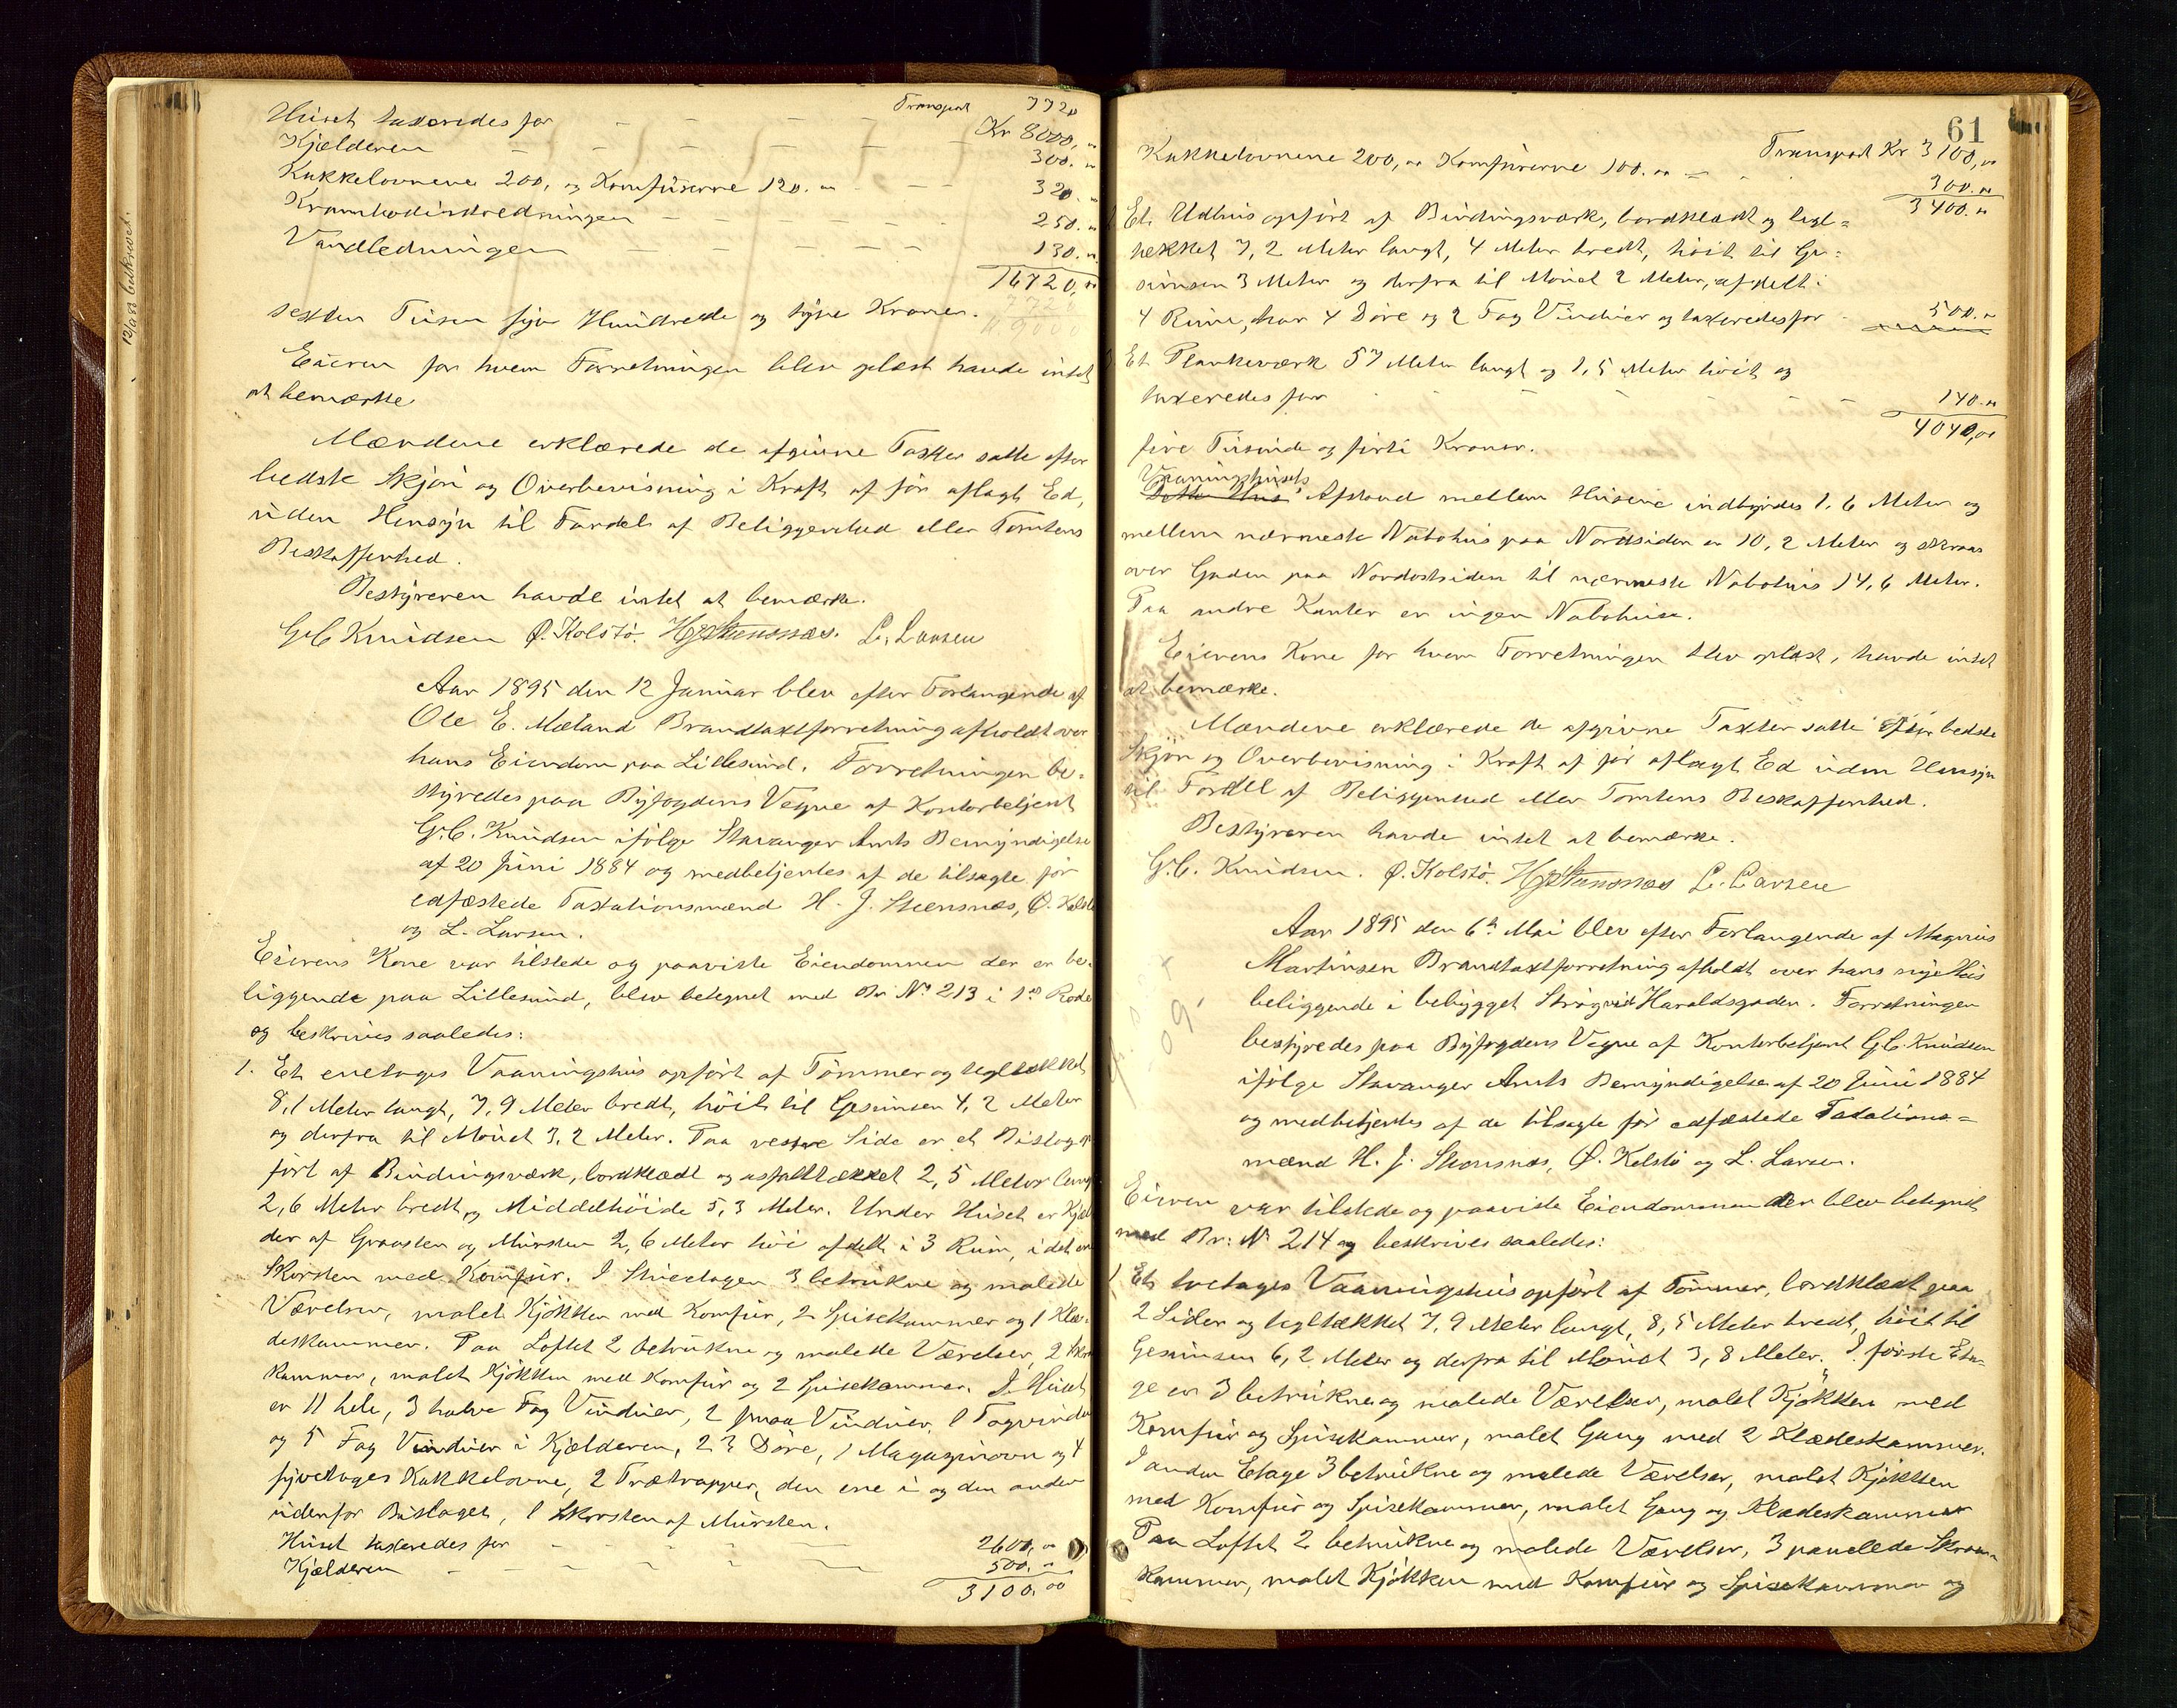 Transport 7720
Huset taxeredes for Kr 8000, "
Kjælderen 300. "
Kakkelovnene 200, og Komfurerne 120. " 320. "
Krambodindredningen 250. "
Vandledningen 130. "
16720, "
sexten Tusen syv Hundrede og tyve Kroner.
Eieren for hvem Forretningen blev oplæst havde intet
at bemærke
Mændene erklærede de afgivne Taxter satte efter
bedste Skjøn og Overbevisning i Kraft af før aflagt Ed,
uden Hensyn til Fordel af Beliggenhed eller Tomtens
Beskaffenhed.
Bestyreren havde intet at bemærke.
G. C. Knudsen Ø. Kolstø. H J Stensnæs. L. Larsen
12/1 83 beskrevet.
Aar 1895 den 12 Januar blev efter Forlangende af
Ole E. Mæland Brandtaxtforretning afholdt over
hans Eiendom paa Lillesund. Forretningen be-
styredes paa Byfogdens Vegne af Kontorbetjent
G. C. Knudsen ifølge Stavanger Amts Bemyndigelse
af 20 Juni 1884 og medbetjentes af de tilsagte før
edfæstede Taxationsmænd H. J. Stensnæs, Ø. Kolstø
og L. Larsen.
Eierens Kone var tilstede og paaviste Eiendommen der er be-
liggende paa Lillesund, blev betegnet med Br. No 213 i 1ste Rode
og beskrives saaledes:
1. Et enetages Vaaningshus opført af Tømmer og tegltækket
8,1 Meter langt, 7,9 Meter bredt, høit til Gesimsen 4,2 Meter
og derfra til Mønet 3,2 Meter. Paa vestre Side er et Bislag op-
ført af Bindingsværk, bordklædt og asfalttækket 2,5 Meter langt
2,6 Meter bredt og Middelhøide 5,3 Meter. Under Huset er Kjæl-
der af Graasten og Mursten 2,6 Meter høi afdelt i 3 Rum, i det ene
Skorsten med Komfur. I Stuetagen 3 betrukne og malede
Værelser, malet Kjøkken med Komfur, 2 Spisekammer og 1 Klæ-
deskammer. Paa Loftet 2 betrukne og malede Værelser, 2 Skram-
kammer, malet Kjøkken med Komfur og 2 Spisekammer. I Huset
er 11 hele, 3 halve Fag Vinduer, 2 smaa Vinduer, 1 Tagvindu
og 5 Fag Vinduer i Kjælderen, 23 Døre, 1 Magazinovn og 4
fyretages Kakkelovne, 2 Trætrapper, den ene i og den anden
udenfor Bislaget, 1 Skorsten af Mursten.
Huset taxeredes for 2600, "
Kjælderen 500. "
3100.00
61
Transport Kr 3100, "
Kakkelovnene 200, " Komfurerne 100. " 300. "
3400. "
2 Et Udhus opført af Bindingsværk, bordklædt og tegl-
tækket 7,2 Meter langt, 4 Meter bredt, høit til Ge-
simsen 3 Meter og derfra til Mønet 2 Meter, afdelt i
4 Rum, har 4 Døre og 2 Fag Vinduer og taxeredes for 500. "
3 Et Plankeværk 57 Meter langt og 1,5 Meter høit og
taxeredes for 140. "
4040,00
fire Tusinde og firti Kroner.
Vaaningshusets
Dette Hus' Afstand mellem Husene indbyrdes 1,6 Meter og
mellem nærmeste Nabohus paa Nordsiden er 10,2 Meter og skraas
over Gaden paa Nordostsiden til nærmeste Nabohus 14,6 Meter.
Paa andre Kanter er ingen Nabohuse.
Eierens Kone for hvem Forretningen blev oplæst, havde intet
at bemærke.
Mændene erklærede de afgivne Taxter satte efter bedste
Skjøn og Overbevisning i Kraft af før aflagt Ed uden Hensyn
til Fordel af Beliggenhed eller Tomtens Beskaffenhed.
Bestyreren havde intet at bemærke.
G. C. Knudsen. Ø. Kolstø. H J Stensnæs L. Larsen
Aar 1895 den 6te Mai blev efter Forlangende af Magnus
Martinsen Brandtaxtforretning afholdt over hans nye Hus
beliggende i bebygget Strøg ved Haraldsgaden. Forretningen
bestyredes paa Byfogdens Vegne af Kontorbetjent G. C. Knudsen
ifølge Stavanger Amts Bemyndigelse af 20 Juni 1884
og medbetjentes af de tilsagte før edfæstede Taxations-
mænd H. J. Stensnæs, Ø. Kolstø og L. Larsen.
Eieren var tilstede og paaviste Eiendommen der blev betegnet
med Br: No 214 og beskrives saaledes:
1 Et toetages Vaaningshus opført af Tømmer, bordklædt paa
2 Sider og tegltækket 7,9 Meter langt, 8,5 Meter bredt, høit til
Gesimsen 6,2 Meter og derfra til Mønet 3,8 Meter. I første Eta-
ge er 3 betrukne og malede Værelser, malet Kjøkken med
Komfur og Spisekammer, malet Gang med 2 Klædeskammer.
I anden Etage 3 betrukne og malede Værelser, malet Kjøkken
med Komfur og Spisekammer, malet Gang og Klædeskammer
Paa Loftet 2 betrukne og malede Værelser, 3 panelede Skram-
kammer, malet Kjøkken med Komfur og Spisekammer og